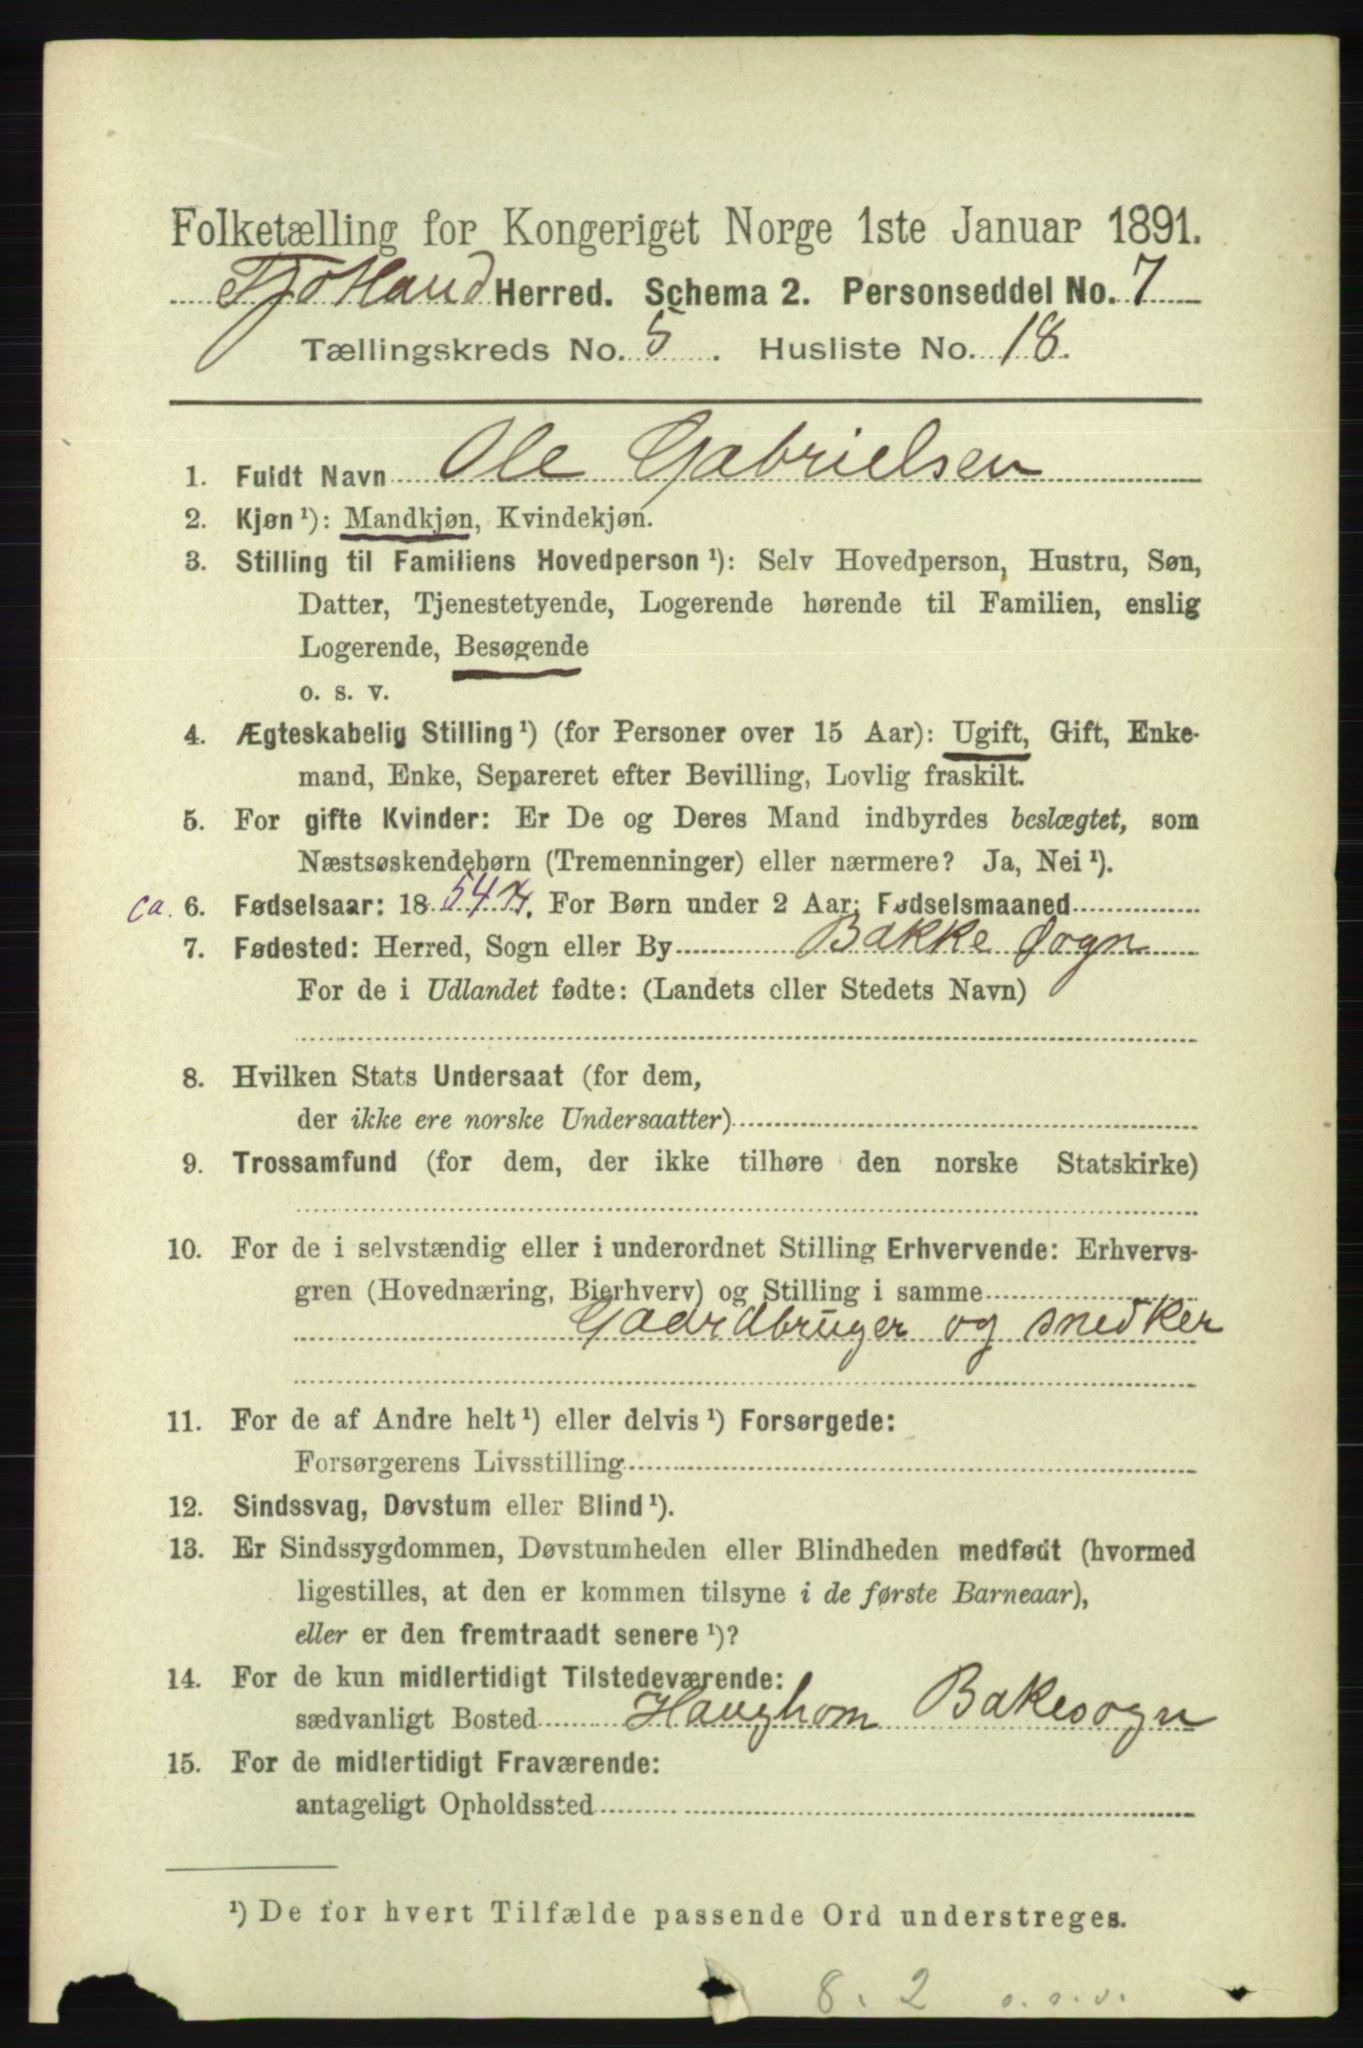 Folketælling for Kongeriget Norge 1ste Januar 1891.
Fjotland Herred. Schema 2. Personseddel No. 7
Tællingskreds No. 5. Husliste No. 18.
1. Fuldt Navn Ole Gabrielsen
2. Kjøn ¹): Mandkjøn, Kvindekjøn.
3. Stilling til Familiens Hovedperson ¹): Selv Hovedperson, Hustru, Søn,
Datter, Tjenestetyende, Logerende hørende til Familien, enslig
Logerende, Besøgende
o. s. v.
4. Ægteskabelig Stilling ¹) (for Personer over 15 Aar): Ugift, Gift, Enke-
mand, Enke, Separeret efter Bevilling, Lovlig fraskilt.
5. For gifte Kvinder: Er De og Deres Mand indbyrdes beslægtet, som
Næstsøskendebørn (Tremenninger) eller nærmere? Ja, Nei ¹).
ca. 6. Fødselsaar: 18 54. For Børn under 2 Aar: Fødselsmaaned
7. Fødested: Herred, Sogn eller By Bakke Sogn
For de i Udlandet fødte: (Landets eller Stedets Navn)
8. Hvilken Stats Undersaat (for dem,
der ikke ere norske Undersaatter)
9. Trossamfund (for dem, der ikke tilhøre den norske Statskirke)
10. For de i selvstændig eller i underordnet Stilling Erhvervende: Erhvervs-
gren (Hovednæring, Bierhverv) og Stilling i samme
Gaardbruger og snedker
11. For de af Andre helt ¹) eller delvis ¹) Forsørgede:
Forsørgerens Livsstilling
12. Sindssvag, Døvstum eller Blind ¹).
13. Er Sindssygdommen, Døvstumheden eller Blindheden medfødt (hvormed
ligestilles, at den er kommen tilsyne i de første Barneaar),
eller er den fremtraadt senere ¹)?
14. For de kun midlertidigt Tilstedeværende:
sædvanligt Bosted Haughom Bakesogn
15. For de midlertidigt Fraværende:
antageligt Opholdssted
¹) De for hvert Tilfælde passende Ord understreges.
8. 2 o.s.v.